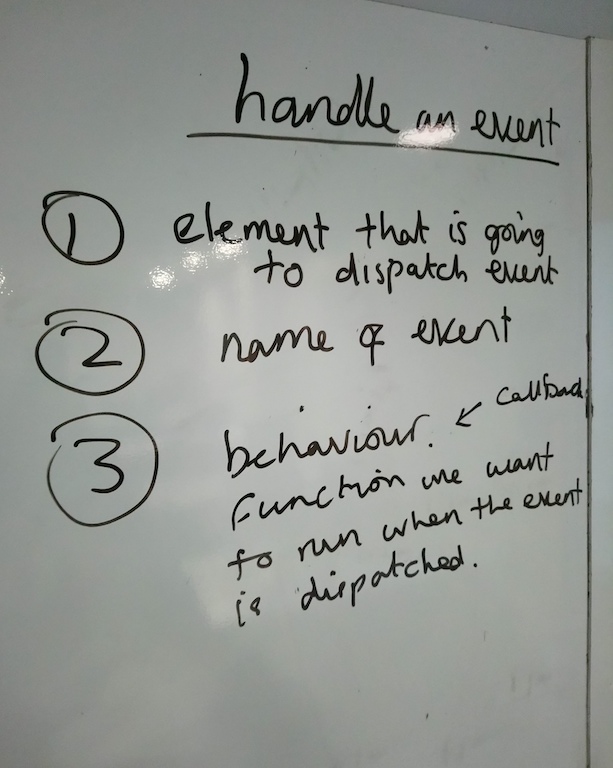 handle an event
1 element that is going
to dispatch event
2 name of event
3 behaviour. ← callback
function we want
to run when the event
is dispatched.